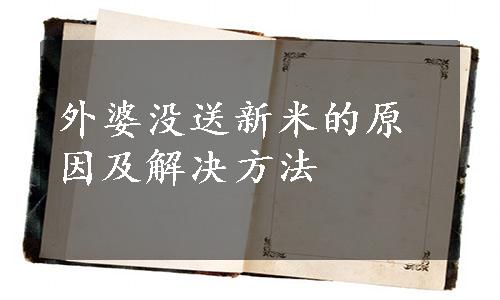 外婆没送新米的原
因及解决方法